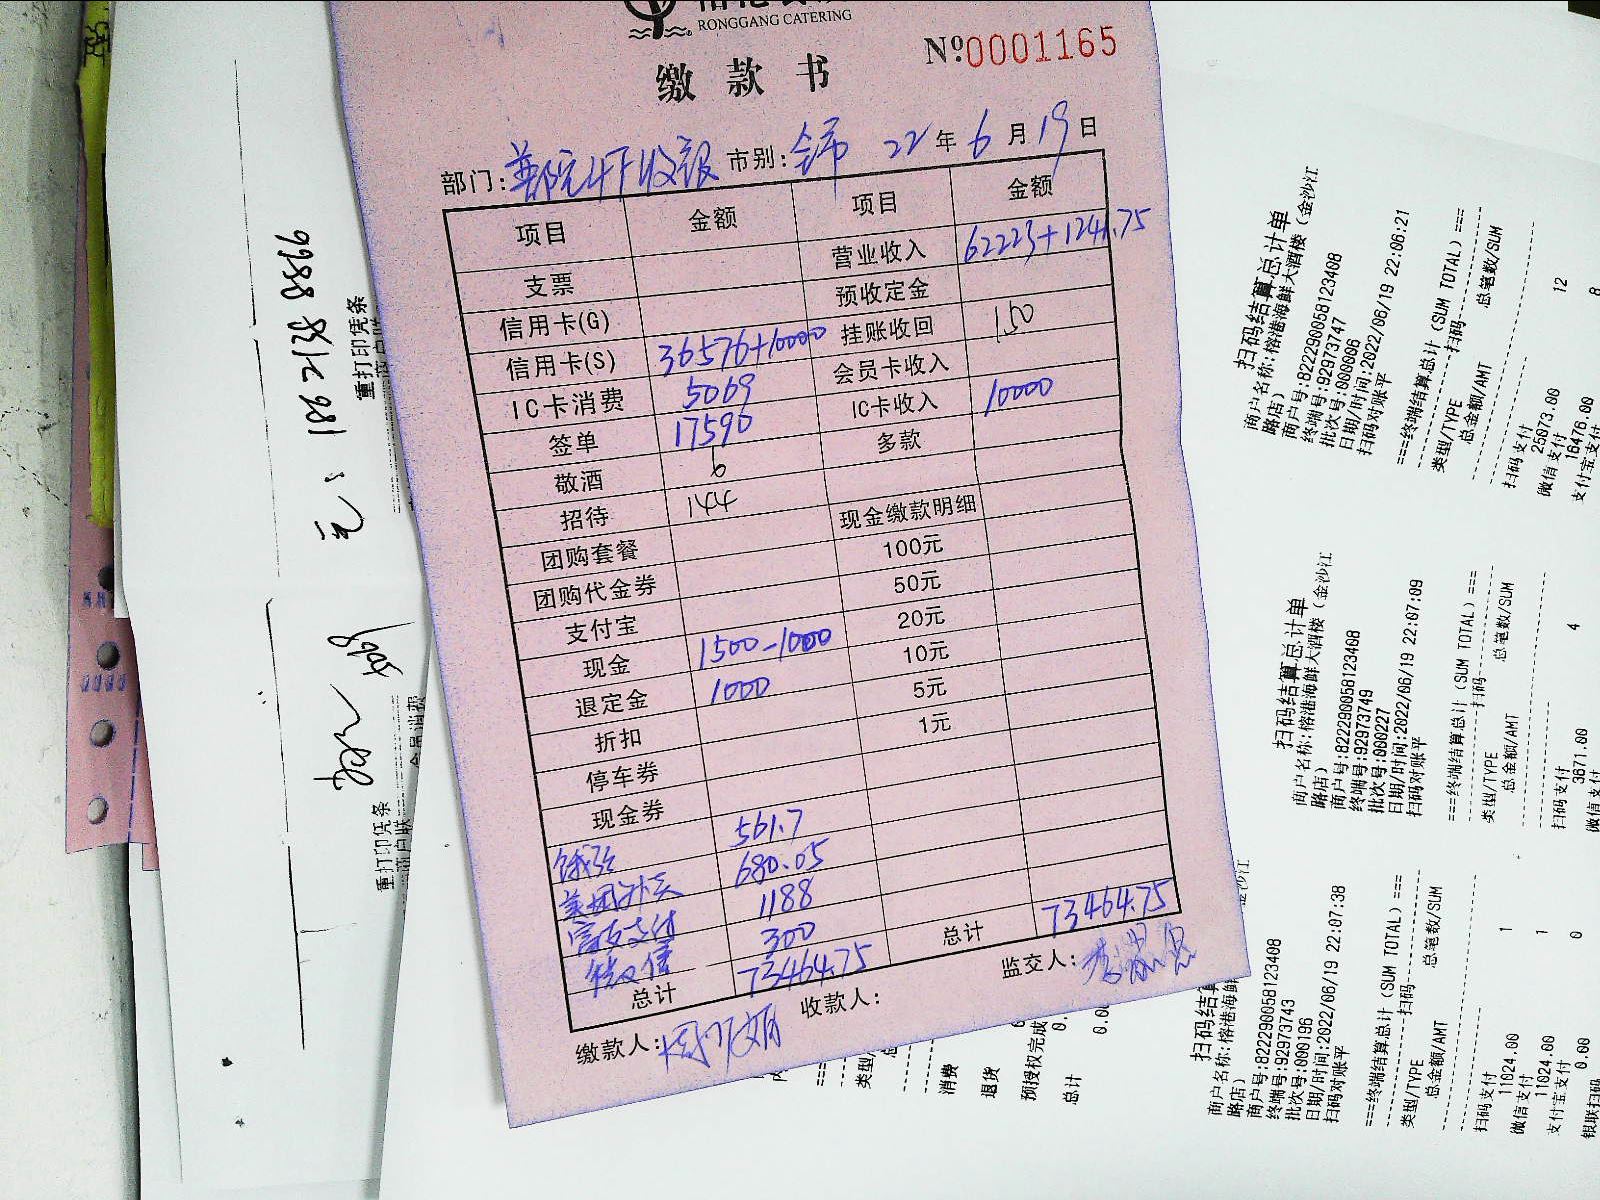 RONGGANG CATERING
№0001165
缴款书
部门: 4F收银 市别: 全市 22年6月19日
项目 金额 项目 金额
支票 营业收入 62223+1241.75
信用卡(G) 预收定金
信用卡(S) 36576+10000 挂账收回 150
IC卡消费 5069 会员卡收入
签单 17590 IC卡收入 10000
敬酒 6 多款
招待 144
团购套餐 现金缴款明细
团购代金券 100元
支付宝 50元
现金 1500-1000 20元
退定金 1000 10元
折扣 5元
停车券 1元
现金券
561.7
美团外卖 680.05
支付 1188
微信 300
总计 73464.75 总计 73464.75
缴款人: 收款人: 监交人:
元: 186 2138 8866
重打印凭条
商户联
重打印凭条
商户联
扫码结算总计单
商户名称:榕港海鲜大酒楼(金沙江
路店)
商户号:822290058123408
终端号:92973747
批次号:000006
日期/时间:2022/06/19 22:06:21
扫码对账平
===终端结算总计(SUM TOTAL)===
扫码
类型/TYPE 总笔数/SUM
总金额/AMT
扫码支付 12
25073.00
微信支付 8
16476.00
支付宝支付
扫码结算总计单
商户名称:榕港海鲜大酒楼(金沙江
路店)
商户号:822290058123408
终端号:92973749
批次号:000227
日期/时间:2022/06/19 22:07:09
扫码对账平
===终端结算总计(SUM TOTAL)===
扫码
类型/TYPE 总笔数/SUM
总金额/AMT
扫码支付 4
3671.00
微信支付
金沙江
扫码结算
商户名称:榕港海鲜
路店)
商户号:822290058123408
终端号:92973743
批次号:000196
日期/时间:2022/06/19 22:07:38
扫码对账平
===终端结算总计(SUM TOTAL)===
扫码
类型/TYPE 总笔数/SUM
总金额/AMT
扫码支付 1
11024.00
微信支付 1
11024.00
支付宝支付 0
0.00
银联扫码
类型
消费
退货
预授权完成
总计
0.00